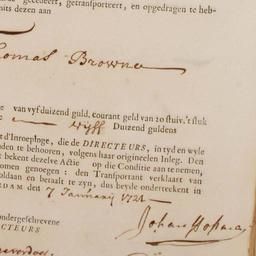 gecedeert, getransporteert, en opgedragen te heb-
mits dezen aan
Thomas Browne
van vyfduizend guld. courant geld van 20 stuiv. 't stuk
vyff Duizend guldens
d'Inroepinge, die de DIRECTEURS, in tyd en wyle
den te behooren, volgens haar origineelen Inleg. Den
t bekent dezelve Actie op de Conditie aan te nemen,
omen genoegen: den Transportant verklaart van
oldaan en betaalt te zyn, dus beyde onderteekent in
RDAM den 7 Januarij 1721
ondergeschrevene
CTEURS
Johan